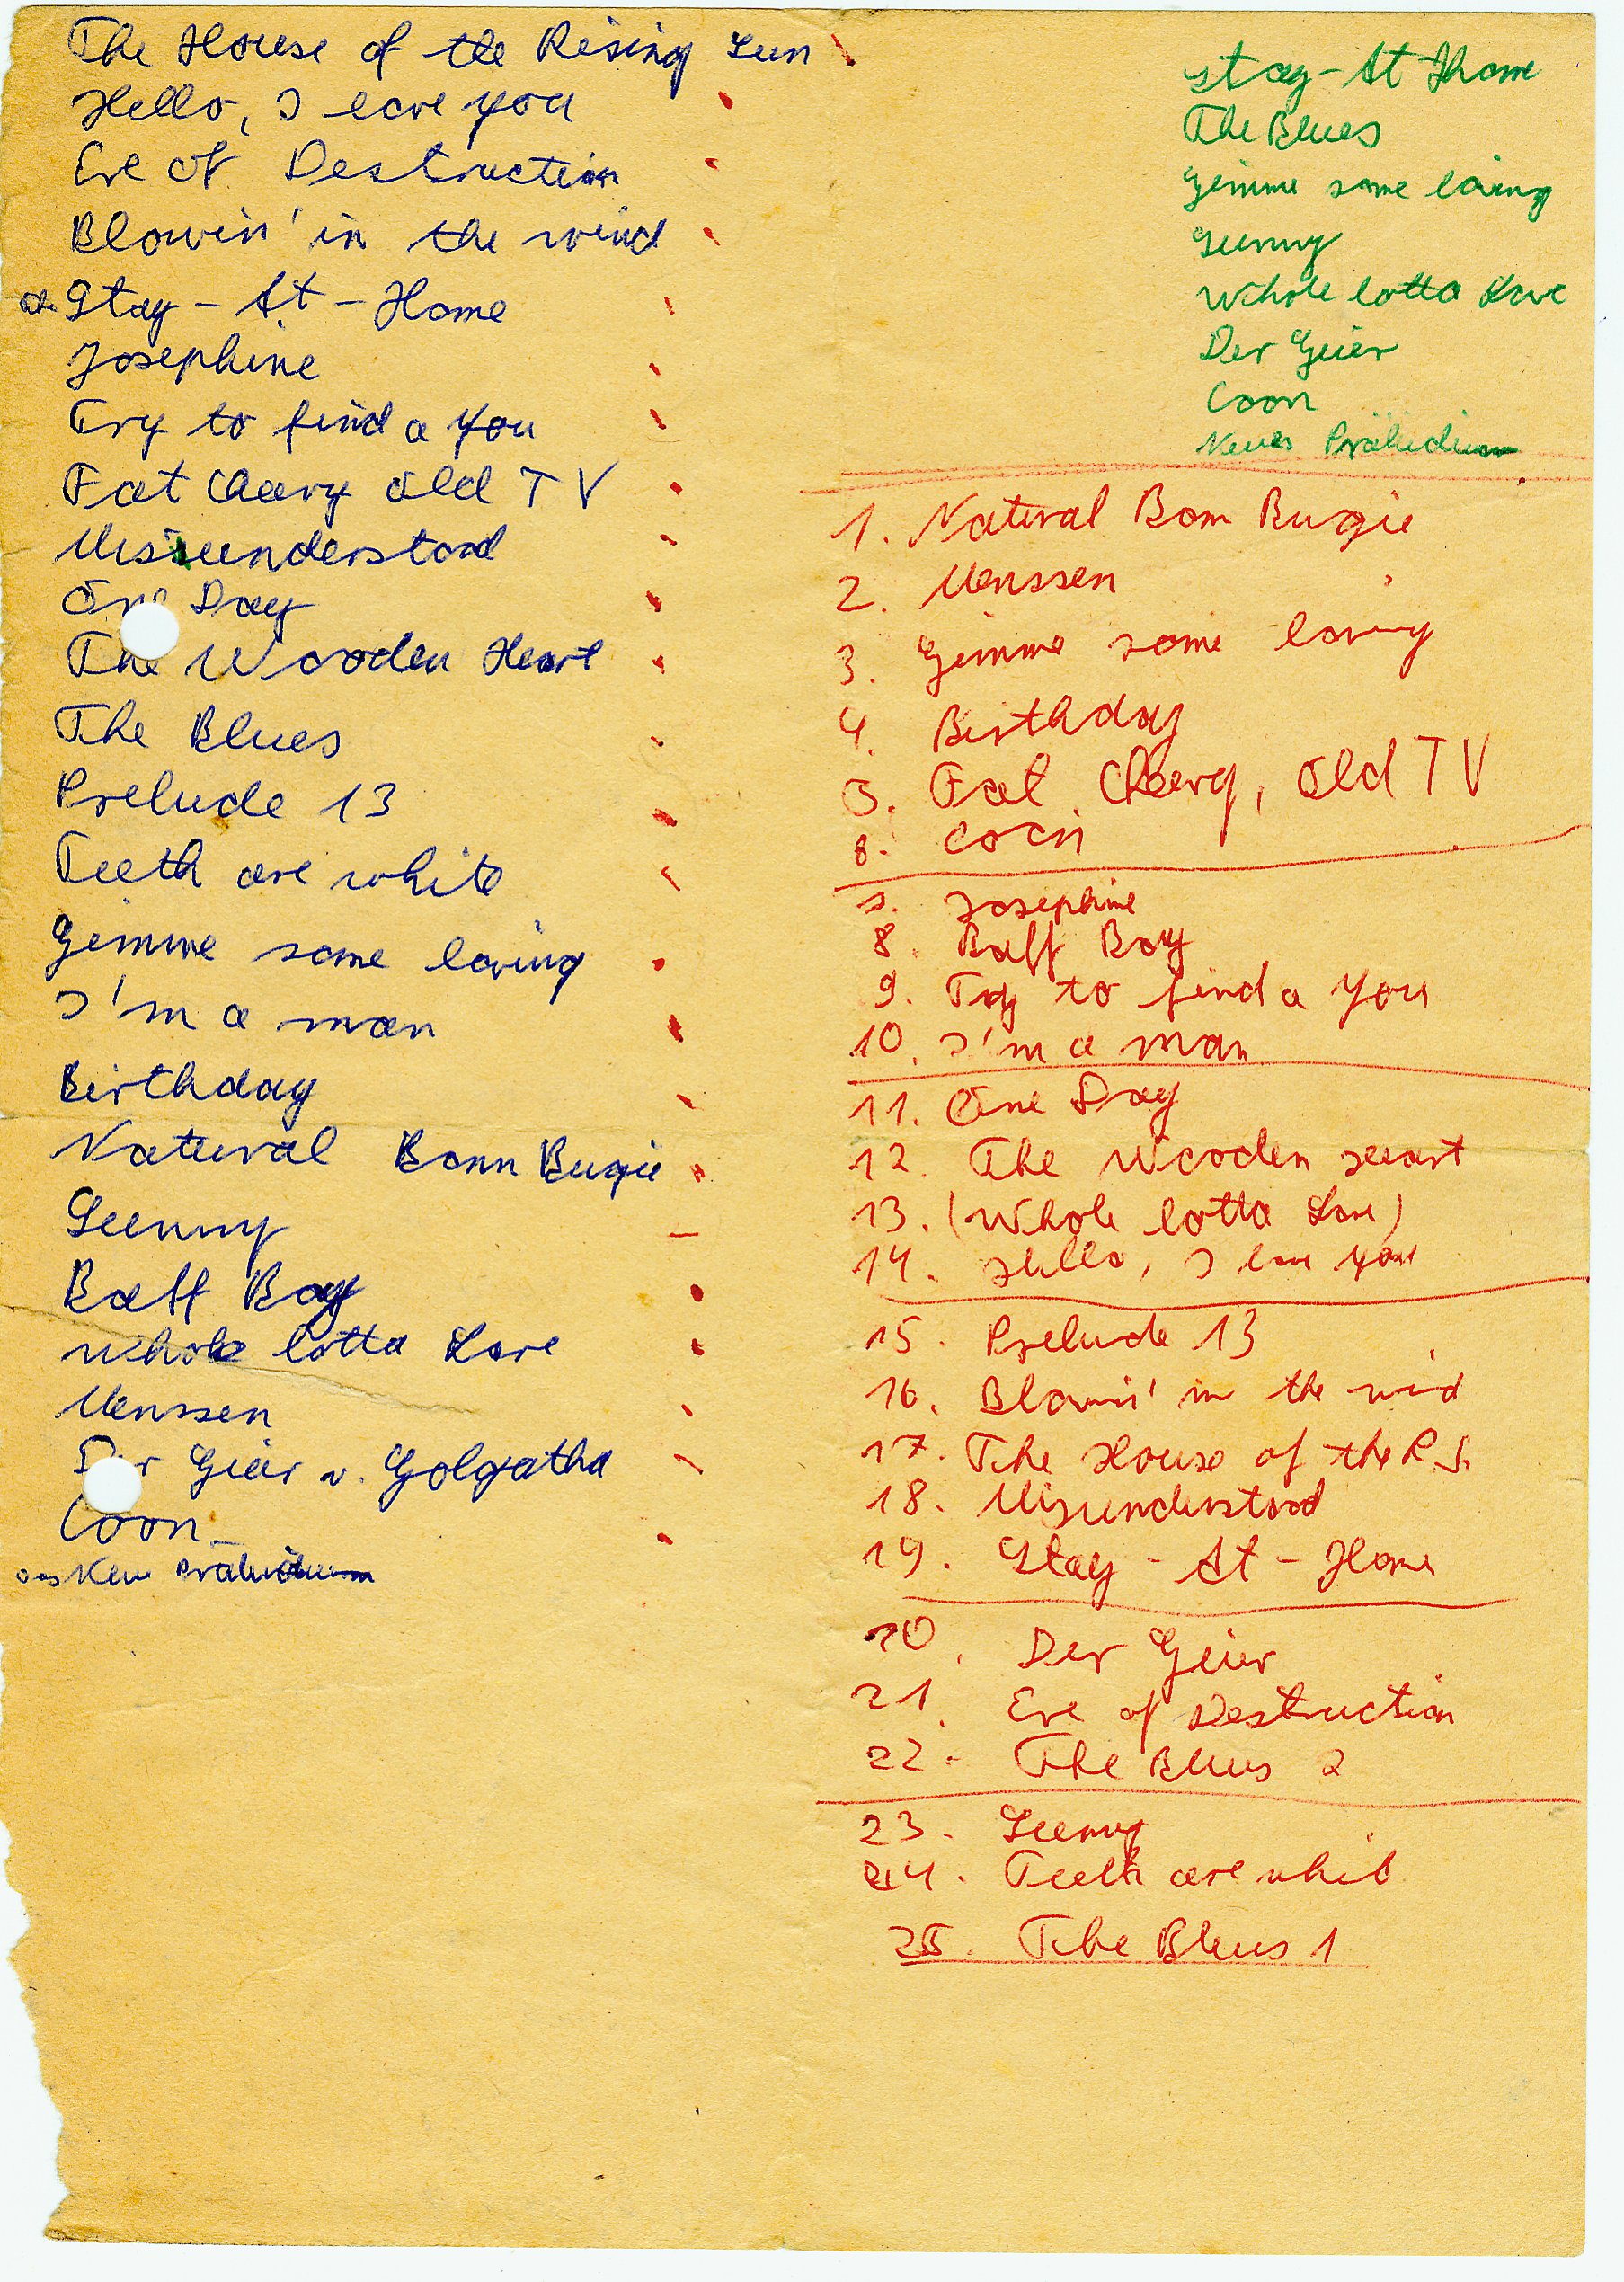 The House of the Rising Sun
Hello, I love you
Eve of Destruction
Blowin' in the wind
Stay - At - Home
Josephine
Try to find a You
Fat Cheery Old TV
Misunderstood
One Day
The Wooden Heart
The Blues
Prelude 13
Teeth are white
Gimme some loving
I'm a man
Birthday
Natural Born Bugie
Sunny
Baff Boy
Whole lotta Love
Menssen
Der Geier v. Golgatha
Coon
Neue Präludium
Stay - At - Home
The Blues
Gimme some loving
Sunny
Whole lotta Love
Der Geier
Coon
Neues Präludium
1. Natural Born Bugie
2. Menssen
3. Gimme some loving
4. Birthday
5. Fat Cheery, Old TV
6. Coon
7. Josephine
8. Baff Boy
9. Try to find a You
10. I'm a man
11. One Day
12. The Wooden Heart
13. (Whole lotta Love)
14. Hello, I love you
15. Prelude 13
16. Blowin' in the wind
17. The House of the R.S.
18. Misunderstood
19. Stay - At - Home
20. Der Geier
21. Eve of Destruction
22. The Blues 2
23. Sunny
24. Teeth are white
25. The Blues 1